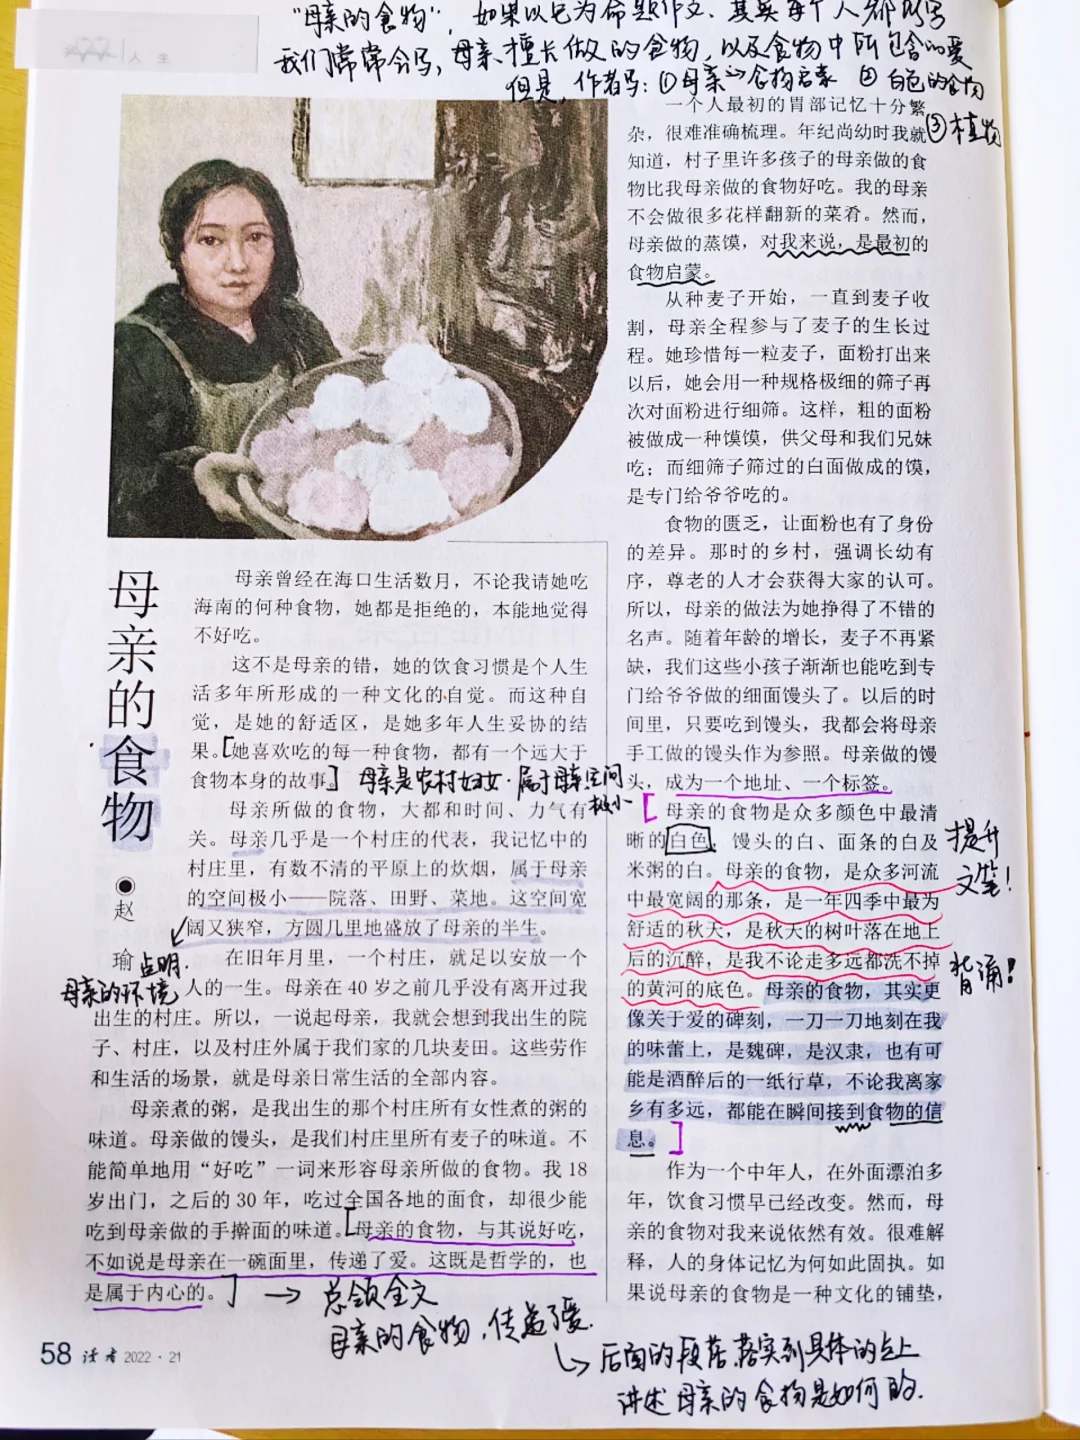 “母亲的食物”，如果以它为命题作文、其实每个人都能写
我们常常会写，母亲擅长做的食物，以及食物中所包含的爱
但是，作者写：①母亲→食物启蒙 ②白色的食物
③植物
人 生
母亲的食物
赵
瑜
母亲曾经在海口生活数月，不论我请她吃
海南的何种食物，她都是拒绝的，本能地觉得
不好吃。
这不是母亲的错，她的饮食习惯是个人生
活多年所形成的一种文化的自觉。而这种自
觉，是她的舒适区，是她多年人生妥协的结
果。[她喜欢吃的每一种食物，都有一个远大于
食物本身的故事。] 母亲是农村妇女·属于母亲空间
极小
母亲所做的食物，大都和时间、力气有
关。母亲几乎是一个村庄的代表，我记忆中的
村庄里，有数不清的平原上的炊烟，属于母亲
的空间极小——院落、田野、菜地。这空间宽
阔又狭窄，方圆几里地盛放了母亲的半生。
点明.
母亲的环境
在旧年月里，一个村庄，就足以安放一个
人的一生。母亲在 40 岁之前几乎没有离开过我
出生的村庄。所以，一说起母亲，我就会想到我出生的院
子、村庄，以及村庄外属于我们家的几块麦田。这些劳作
和生活的场景，就是母亲日常生活的全部内容。
母亲煮的粥，是我出生的那个村庄所有女性煮的粥的
味道。母亲做的馒头，是我们村庄里所有麦子的味道。不
能简单地用“好吃”一词来形容母亲所做的食物。我 18
岁出门，之后的 30 年，吃过全国各地的面食，却很少能
吃到母亲做的手擀面的味道。[母亲的食物，与其说好吃，
不如说是母亲在一碗面里，传递了爱。这既是哲学的，也
是属于内心的。] → 总领全文
母亲的食物，传递了爱.
后面的段落，落实到具体的点上
讲述母亲的食物是如何的.
一个人最初的胃部记忆十分繁
杂，很难准确梳理。年纪尚幼时我就
知道，村子里许多孩子的母亲做的食
物比我母亲做的食物好吃。我的母亲
不会做很多花样翻新的菜肴。然而，
母亲做的蒸馍，对我来说，是最初的
食物启蒙。
从种麦子开始，一直到麦子收
割，母亲全程参与了麦子的生长过
程。她珍惜每一粒麦子，面粉打出来
以后，她会用一种规格极细的筛子再
次对面粉进行细筛。这样，粗的面粉
被做成一种馍馍，供父母和我们兄妹
吃；而细筛子筛过的白面做成的馍，
是专门给爷爷吃的。
食物的匮乏，让面粉也有了身份
的差异。那时的乡村，强调长幼有
序，尊老的人才会获得大家的认可。
所以，母亲的做法为她挣得了不错的
名声。随着年龄的增长，麦子不再紧
缺，我们这些小孩子渐渐也能吃到专
门给爷爷做的细面馒头了。以后的时
间里，只要吃到馒头，我都会将母亲
手工做的馒头作为参照。母亲做的馒
头，成为一个地址、一个标签。
[母亲的食物是众多颜色中最清
晰的白色。馒头的白、面条的白及
米粥的白。母亲的食物，是众多河流
中最宽阔的那条，是一年四季中最为
舒适的秋天，是秋天的树叶落在地上
后的沉醉，是我不论走多远都洗不掉
的黄河的底色。母亲的食物，其实更
像关于爱的碑刻，一刀一刀地刻在我
的味蕾上，是魏碑，是汉隶，也有可
能是酒醉后的一纸行草，不论我离家
乡有多远，都能在瞬间接到食物的信
息。]
提升
文笔！
背诵！
作为一个中年人，在外面漂泊多
年，饮食习惯早已经改变。然而，母
亲的食物对我来说依然有效。很难解
释，人的身体记忆为何如此固执。如
果说母亲的食物是一种文化的铺垫，
58 读者 2022 · 21